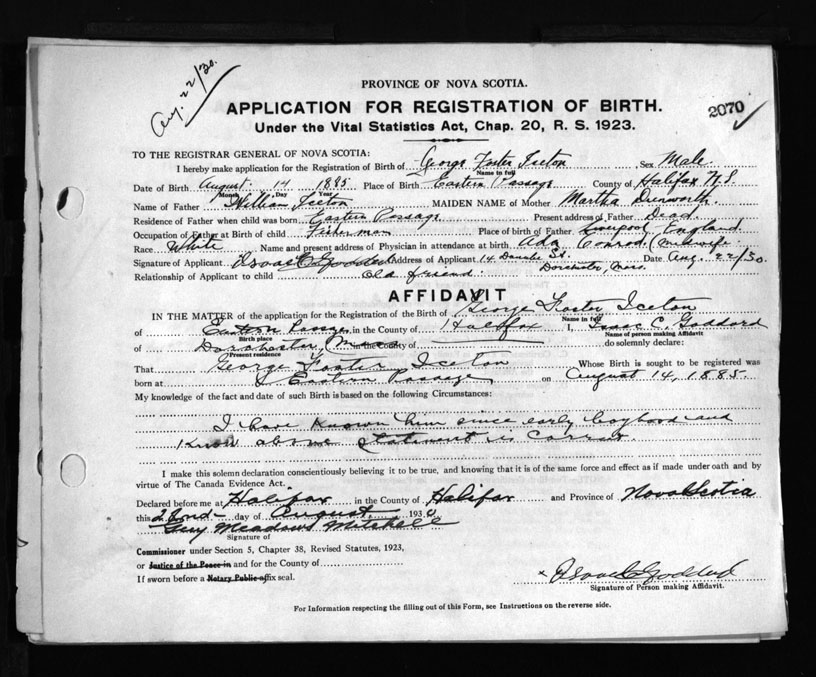 Aug. 22/30.
PROVINCE OF NOVA SCOTIA.
APPLICATION FOR REGISTRATION OF BIRTH.
2070
Under the Vital Statistics Act, Chap. 20, R. S. 1923.
TO THE REGISTRAR GENERAL OF NOVA SCOTIA:
I hereby make application for the Registration of Birth of George Foster Iceton Sex Male
Name in full
Date of Birth August 14 1885 Place of Birth Eastern Passage County of Halifax N.S.
Month Day Year
Name of Father William Iceton MAIDEN NAME of Mother Martha
Residence of Father when child was born Eastern Passage Present address of Father Dead.
Occupation of Father at Birth of child Fisherman Place of birth of Father Liverpool England.
Race White Name and present address of Physician in attendance at birth Ada Conrad, (Midwife.
Signature of Applicant Isaac C Goddard Address of Applicant 14 St. Date Aug. 22/30.
Dorchester, Mass.
Relationship of Applicant to child Old friend.
AFFIDAVIT
IN THE MATTER of the application for the Registration of the Birth of George Foster Iceton
Name in full
of Eastern Passage, in the County of Halifax I, Isaac C. Goddard
Birth place Name of person making Affidavit
of Dorchester, (Mass in the County of do solemnly declare:
Present residence
That George Foster Iceton Whose Birth is sought to be registered was
born at Eastern Passage on August 14, 1885.
My knowledge of the fact and date of such Birth is based on the following Circumstances:
I have known him since early boyhood and
know above statement is correct.
I make this solemn declaration conscientiously believing it to be true, and knowing that it is of the same force and effect as if made under oath and by
virtue of The Canada Evidence Act.
Declared before me at Halifax in the County of Halifax and Province of Nova Scotia
this 22nd day of August, 1930
Guy Meadows Mitchell
Signature of
Commissioner under Section 5, Chapter 38, Revised Statutes, 1923,
or Justice of the Peace in and for the County of
If sworn before a Notary Public affix seal.
x Isaac C Goddard
Signature of Person making Affidavit.
For Information respecting the filling out of this Form, see Instructions on the reverse side.